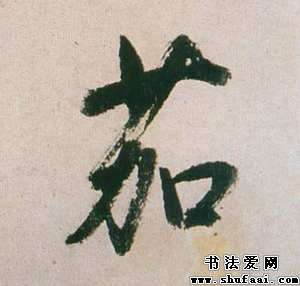 茄
书法爱网
www.shufaai.com